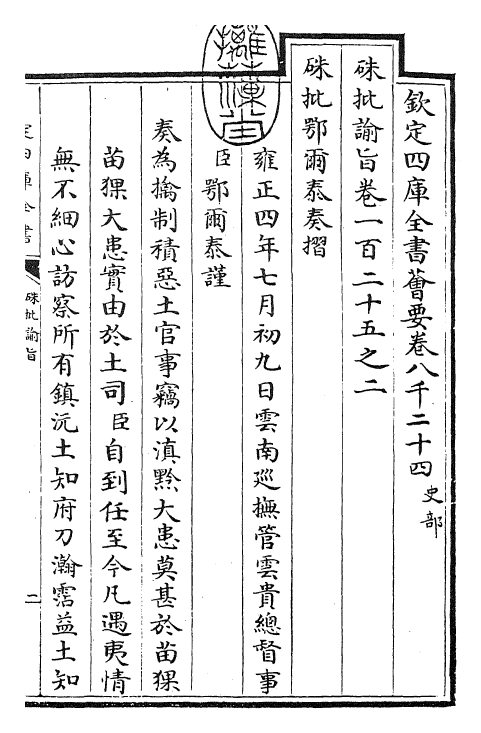 欽定四庫全書薈要卷八千二十四 史部
硃批諭旨卷一百二十五之二
硃批鄂爾泰奏摺
雍正四年七月初九日雲南廵撫管雲貴總督事
臣鄂爾泰謹
奏為擒制積惡土官事竊以滇黔大患莫甚於苗猓
苗猓大患實由於土司臣自到任至今凡遇夷情
無不細心訪察所有鎮沅土知府刀瀚霑益土知
硃批諭旨
二